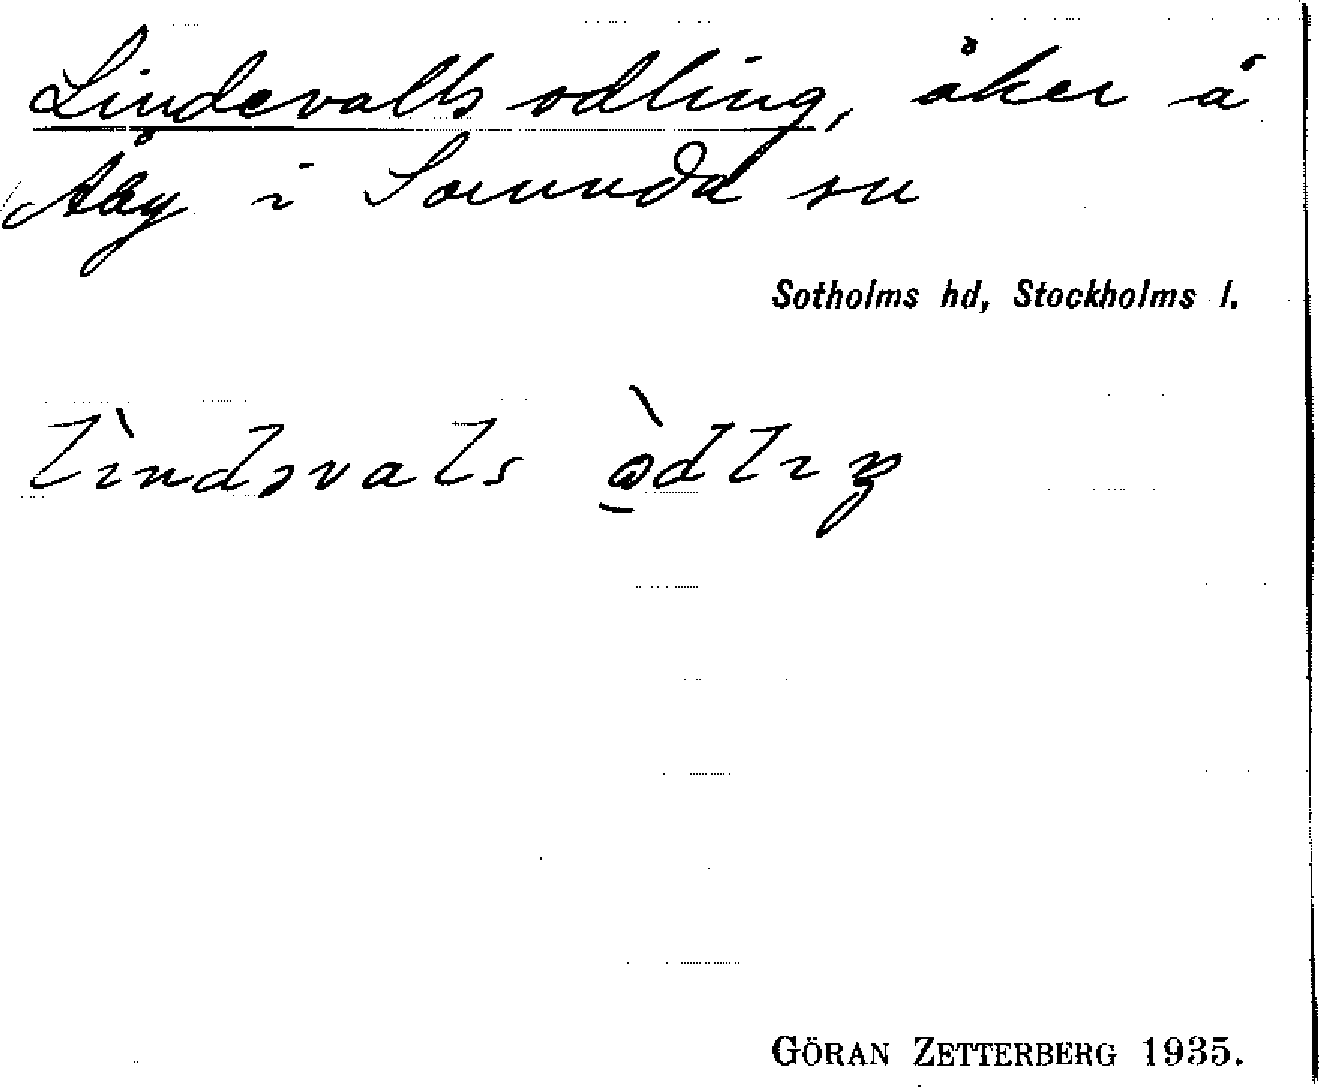 Lindevalls odling, åker å
Åby i Sorunda sn
Sotholms hd, Stockholms l.
lìndəvals
GÖRAN ZETTERBERG 1935.